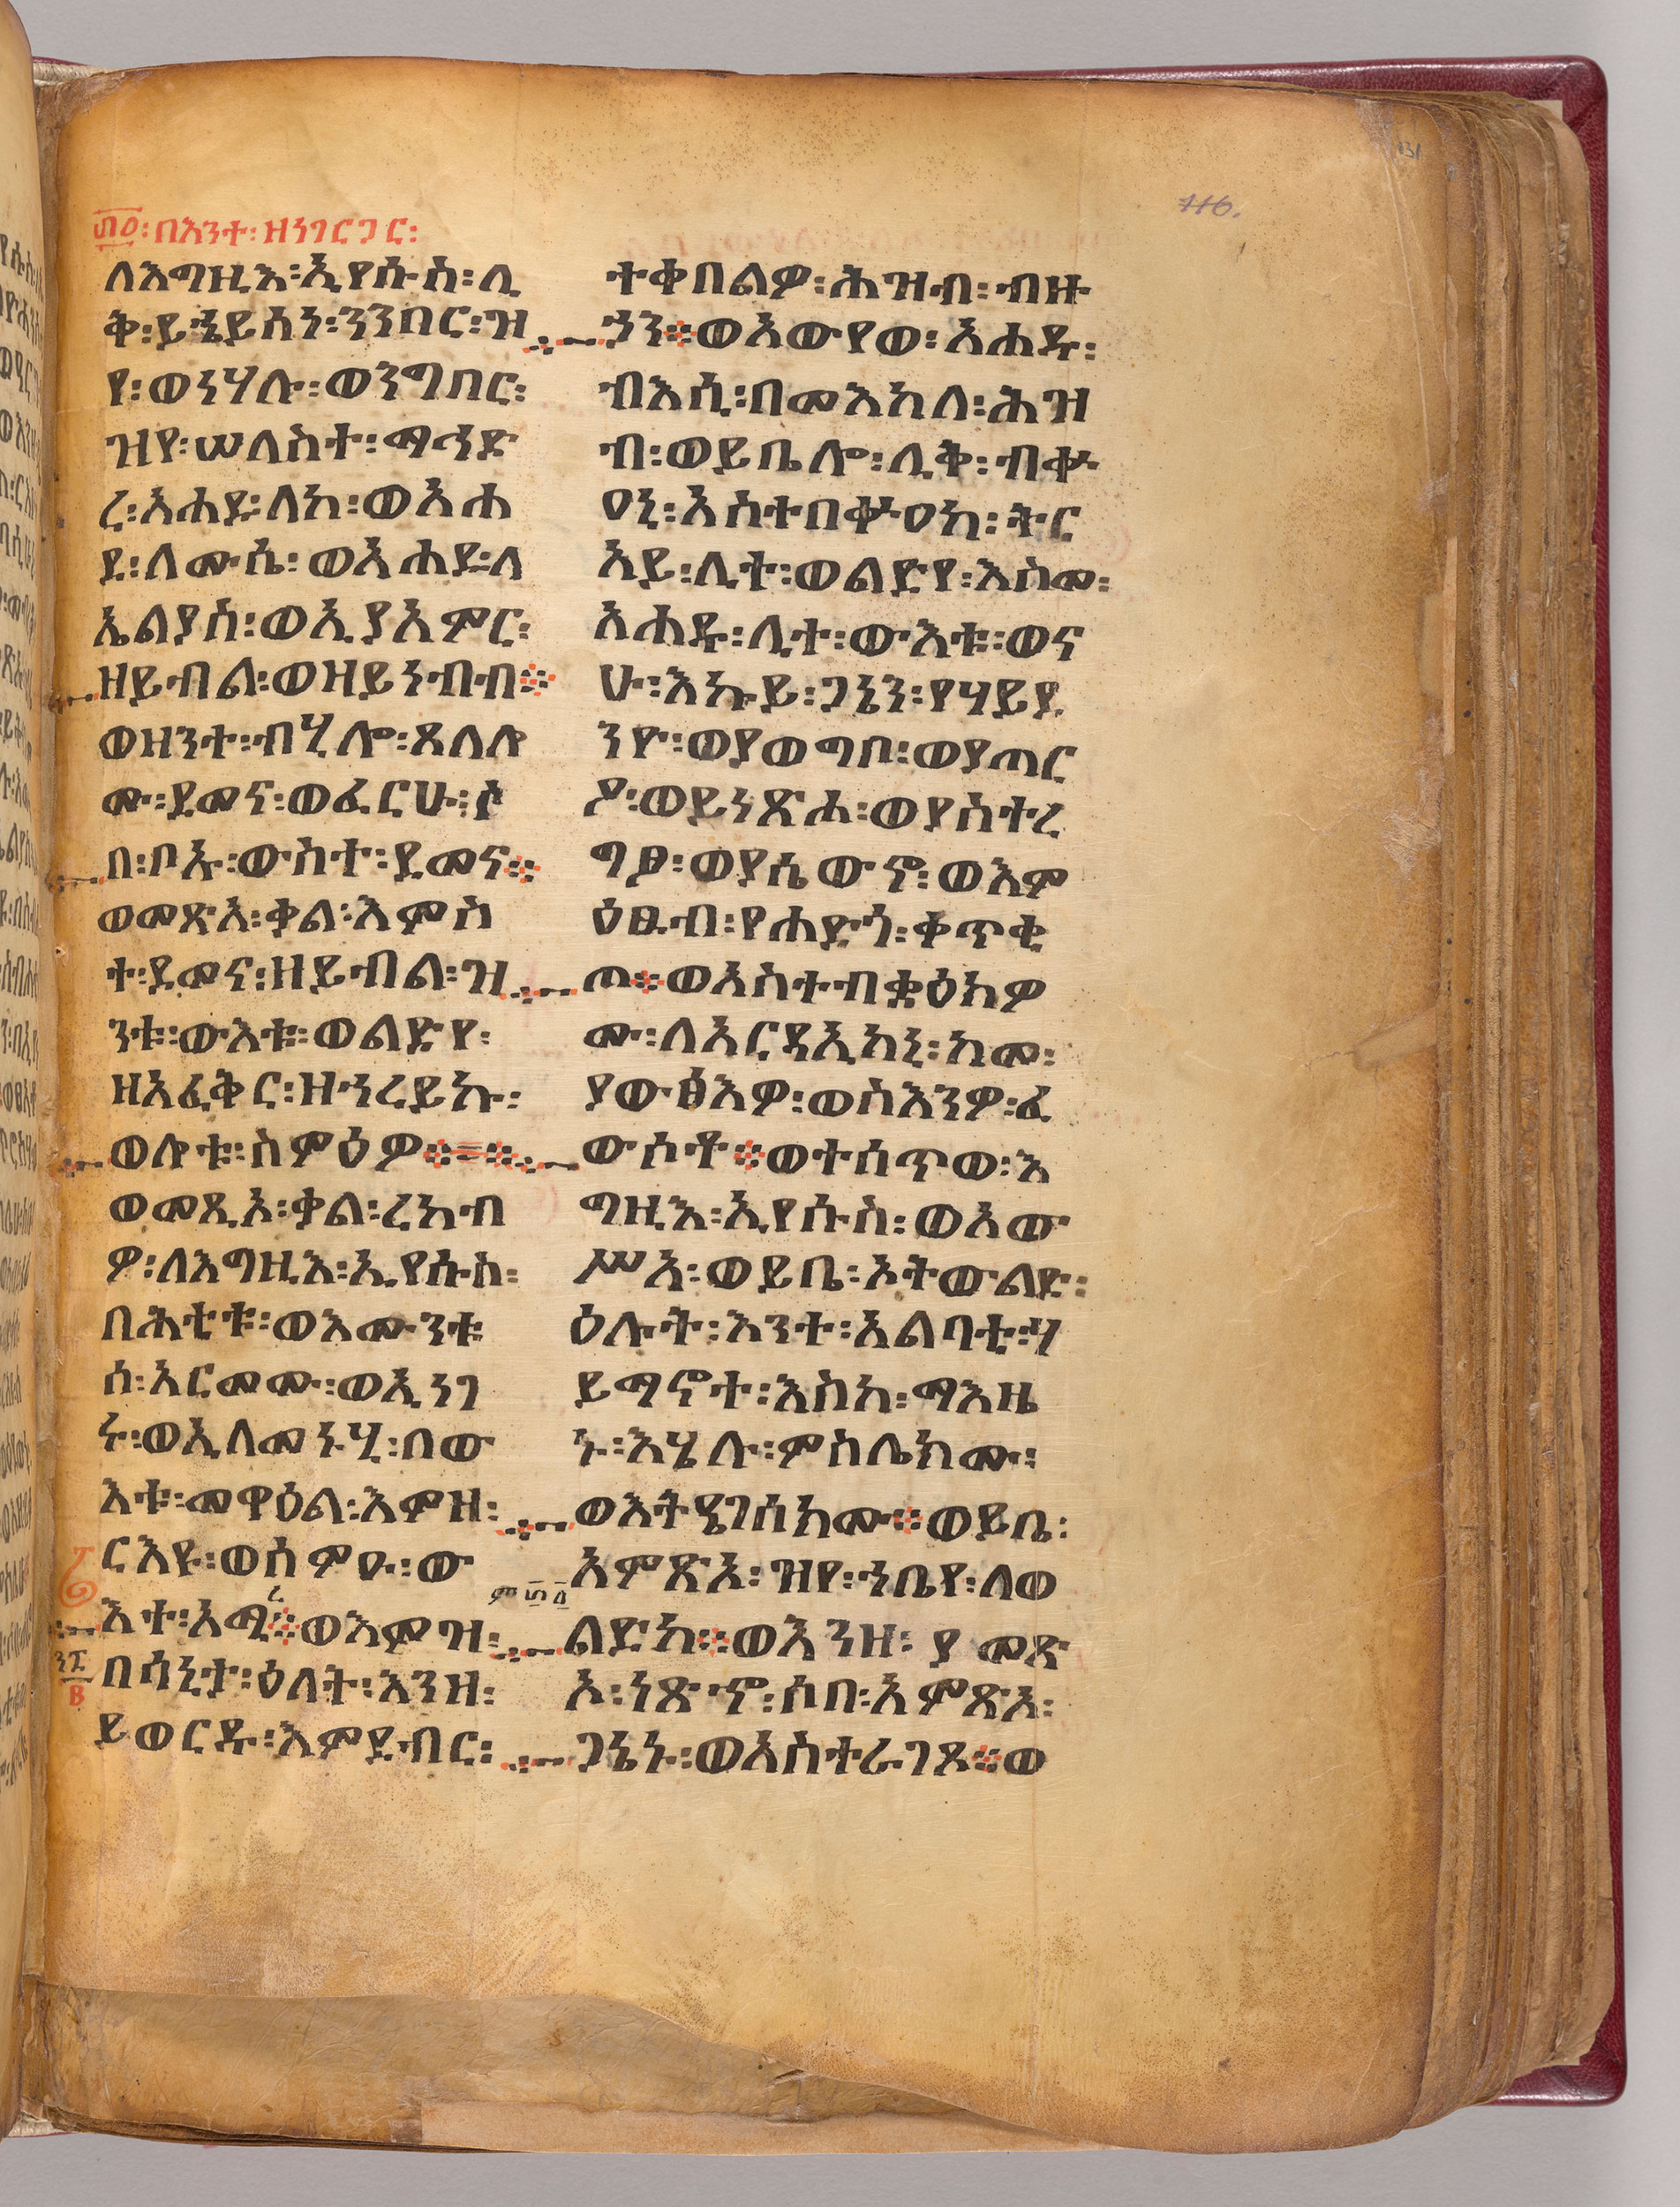 131
116.
፴፬፡በእንተ፡ዘነገርጋር፡
ለእግዚእ፡ኢየሱስ፡ሊ
ቅ፡ይኄይሰነ፡ንንበር፡ዝ
የ፡ወነሃሉ፡ወንግበር፡
ዝየ፡ሠለስተ፡ማኅደ
ረ፡አሐደ፡ለከ፡ወአሐ
ደ፡ለሙሴ፡ወአሐደ፡ለ
ኤልያስ፡ወኢያአምር፡
ዘይብል፡ወዘይነብብ፨
ወዘንተ፡ብሂሎ፡ጸለሎ
ሙ፡ደመና፡ወፈርሁ፡ሶ
በ፡ቦኡ፡ውስተ፡ደመና፨
ወመጽአ፡ቃል፡እምስ
ተ፡ደመና፡ዘይብል፡ዝ
ንቱ፡ውእቱ፡ወልድየ፡
ዘአፈቅር፡ዘኅረይኩ፡
ወሎቱ፡ስምዕዎ፨=፨
ወመጺኦ፡ቃል፡ረከብ
ዎ፡ለእግዚእ፡ኢየሱስ፡
በሕቲቱ፡ወእሙንቱ
ሰ፡አርመሙ፡ወኢነገ
ሩ፡ወኢለመኑሂ፡በው
እቱ፡መዋዕል፡እምዘ፡
ርእዩ፡ወሰምዑ፡ው
እተ፡አሚረ፨ወእምዝ፡
በሳኒታ፡ዕለት፡እንዘ፡
ይወርዱ፡እምደብር፡
ተቀበልዎ፡ሕዝብ፡ብዙ
ኃን፨ወአውየወ፡አሐዱ፡
ብእሲ፡በመእከለ፡ሕዝ
ብ፡ወይቤሎ፡ሊቅ፡ብቍ
ዐኒ፡አስተበቍዐከ፡ትር
አይ፡ሊት፡ወልድየ፡እስመ፡
አሐዱ፡ሊተ፡ውእቱ፡ወና
ሁ፡እኩይ፡ጋኔን፡የሃይደ
ንዮ፡ወያወግቦ፡ወያጠር
ዖ፡ወይነጽሖ፡ወያስተረ
ግፆ፡ወያሴውኖ፡ወእም
ዕፁብ፡የሐድጎ፡ቀጥቂ
ጦ፨ወአስተብቋዕክዎ
ሙ፡ለአርዳኢከኒ፡ከመ፡
ያውፅእዎ፡ወስእንዎ፡ፈ
ውሶቶ፨ወተሰጥወ፡እ
ግዚእ፡ኢየሱስ፡ወአው
ሥአ፡ወይቤ፡ኦትውልድ፡
ዕሉት፡እንተ፡አልባቲ፡ሃ
ይማኖተ፡እስከ፡ማእዜ
ኑ፡እሄሉ፡ምስሌክሙ፡
ወእትዔገሰክሙ፨ወይቤ፡
አምጽአ፡ዝየ፡ኀቤየ፡ለወ
ልድከ፨ወእንዘ፡ያመጽ
ኦ፡ነጽኆ፡ሶበ፡አምጽአ፡
ጋኔኑ፡ወአስተራገጾ፨ወ